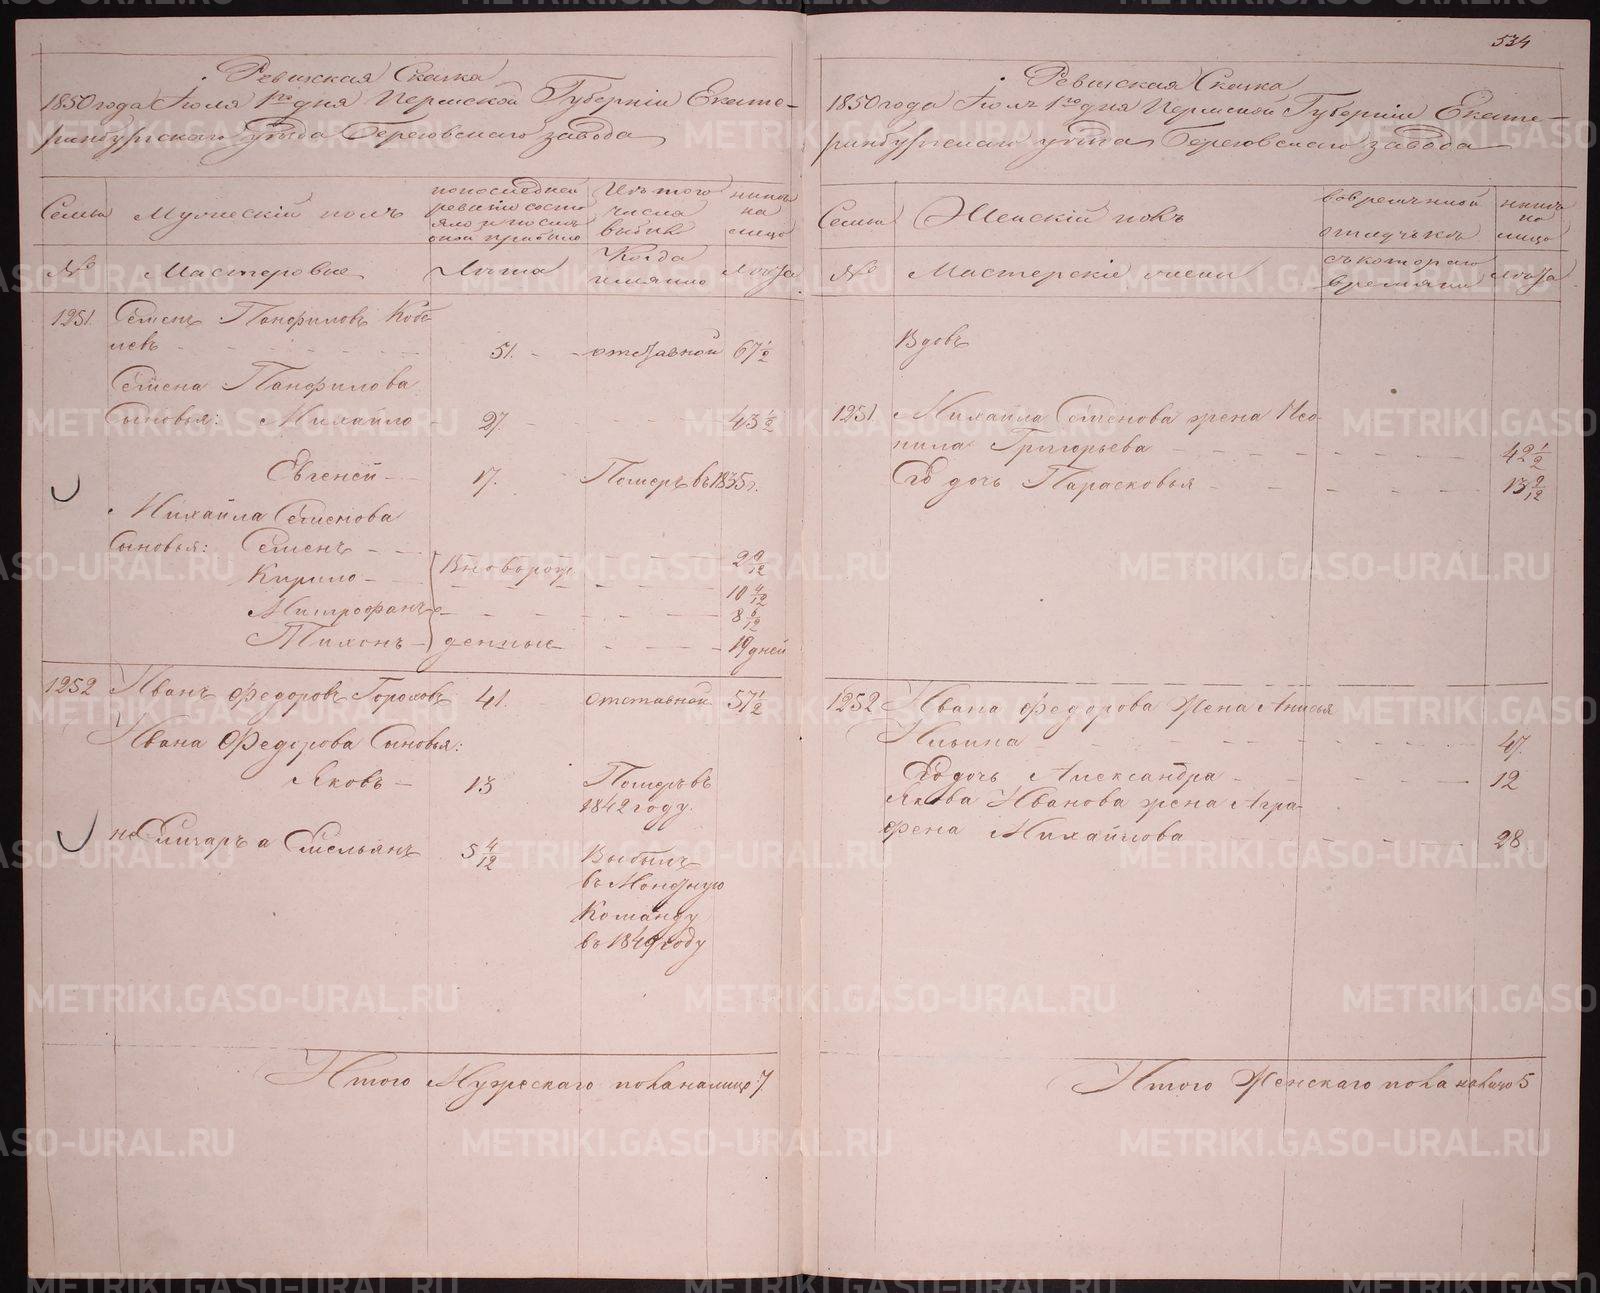 534
Ревижская Скаска
1850 года Іюля 1го дня Пермской Губерніи Екате-
ринбургскаго уѣзда Березовскаго завода
Семьи
Мужескій полъ
по последней
ревизіи состо
яло и послѣ
оной прибыло
Изъ того
числа
выбыло
нынѣ
на
лицо
№
Мастеровые
Лѣта
Когда
имянно
Лѣта
1251.
Семенъ Панфиловъ Кобе
левъ
51.
отставной
67 1/2
Семена Панфилова
Сыновья: Михайло
27.
43 1/2
Евгеней
17.
Померъ въ 1835 г.
Михайла Семенова
Сыновья: Семенъ
Вновь рож
2 9/12
Кирило
10 4/12
Митрофанъ
8 6/12
Тихонъ
денные
19 дней
1252
Иванъ Федоровъ Гороховъ
41.
отставной
57 1/2
Ивана Федорова Сыновья:
Яковъ
13
Померъ въ
1842 году.
Емельянъ
5 4/12
Выбылъ
въ
Команду
въ году
Итого Мужескаго пола налицо 7
Ревижская Скаска
1850 года Іюль 1го дня Пермской Губерніи Екате-
ринбургскаго уѣзда Березовскаго завода
Семьи
Женскій полъ
во временной
отлучькѣ
нынѣ
на
лицо
№
Мастерскіе жены
съ котораго
времяни
Лѣта
Вдовъ
1251.
Михайла Семенова жена Нео-
нила Григорьева
42 1/2
Его дочь Парасковья
13 9/12
1252
Ивана Федорова Жена Анисья
Ильина
47.
Его дочь Александра
12
Якова Иванова жена Агра-
фена Михайлова
28.
Итого Женскаго пола налицо 5
METRIKI.GASO-URAL.RU